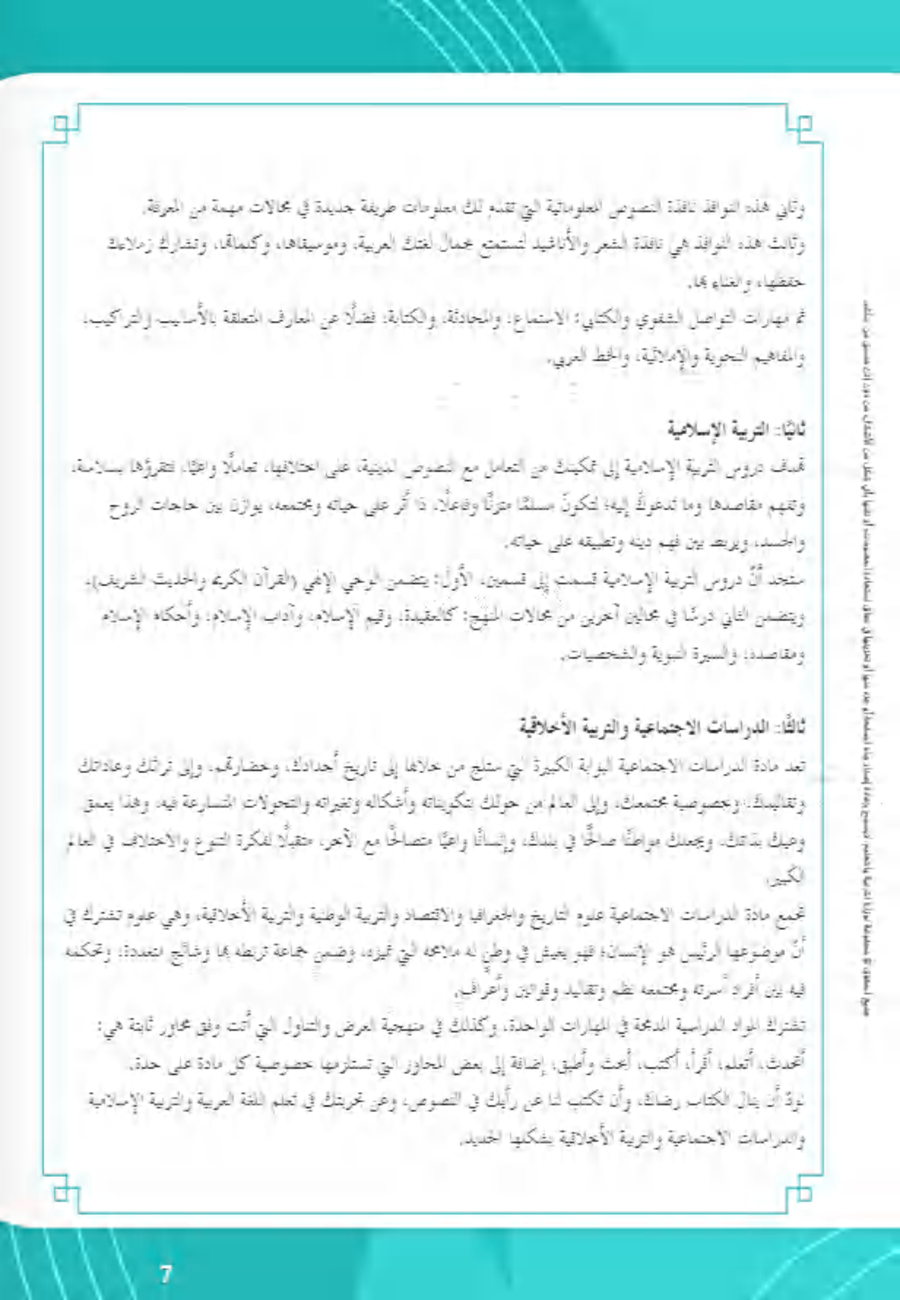 وثاني هذه النوافذ نافذة النصوص المعلوماتية التي تقدم لك معلومات طريفة جديدة في مجالات مهمة من المعرفة.
وثالث هذه النوافذ هي نافذة الشعر والأناشيد لتستمتع بجمال لغتك العربية، وموسيقاها، وكلماتها، وتشارك زملاءك
حفظها، والغناء بها.
ثم مهارات التواصل الشفوي والكتابي: الاستماع، والمحادثة، والكتابة؛ فضلًا عن المعارف المتعلقة بالأساليب والتراكيب،
والمفاهيم النحوية والإملائية، والخط العربي.
ثانيًا: التربية الإسلامية
تهدف دروس التربية الإسلامية إلى تمكينك من التعامل مع النصوص الدينية، على اختلافها، تعاملًا واعيًا، فتقرؤها بسلاسة،
وتفهم مقاصدها وما تدعوك إليه؛ لتكونَ مسلمًا متزنًا وفاعلًا، ذا أثر على حياته ومجتمعه، يوازن بين حاجات الروح
والجسد، ويربط بين فهم دينه وتطبيقه على حياته.
ستجد أنّ دروس التربية الإسلامية قسمت إلى قسمين، الأول: يتضمن الوحي الإلهي (القرآن الكريم والحديث الشريف)،
ويتضمن الثاني درسًا في مجالين آخرين من مجالات المنهج: كالعقيدة، وقيم الإسلام، وآداب الإسلام، وأحكام الإسلام
ومقاصده، والسيرة النبوية والشخصيات.
ثالثًا: الدراسات الاجتماعية والتربية الأخلاقية
تعد مادة الدراسات الاجتماعية البوابة الكبيرة التي ستلج من خلالها إلى تاريخ أجدادك، وحضارتهم، وإلى تراثك وعاداتك
وتقاليدك، وخصوصية مجتمعك، وإلى العالم من حولك بتكويناته وأشكاله وتغيراته والتحولات المتسارعة فيه. وهذا يعمق
وعيك بذاتك، ويجعلك مواطنًا صالحًا في بلدك، وإنسانًا واعيًا متصالحًا مع الآخر، متقبلًا لفكرة التنوع والاختلاف في العالم
الكبير.
تجمع مادة الدراسات الاجتماعية علوم التاريخ والجغرافيا والاقتصاد والتربية الوطنية والتربية الأخلاقية، وهي علوم تشترك في
أنّ موضوعها الرئيس هو الإنسان؛ فهو يعيش في وطن له ملامحه التي تميزه، وضمن جماعة تربطه بها وشائج متعددة، وتحكمه
فيه بين أفراد أسرته ومجتمعه نظم وتقاليد وقوانين وأعراف.
تشترك المواد الدراسية المدمجة في المهارات الواحدة، وكذلك في منهجية العرض والتناول التي أتت وفق محاور ثابتة هي:
أتحدث، أتعلم، أقرأ، أكتب، أبحث وأطبق، إضافة إلى بعض المحاور التي تستلزمها خصوصية كل مادة على حدة.
نودّ أن ينال الكتاب رضاك، وأن تكتب لنا عن رأيك في النصوص، وعن تجربتك في تعلم اللغة العربية والتربية الإسلامية
والدراسات الاجتماعية والتربية الأخلاقية بشكلها الجديد.
7